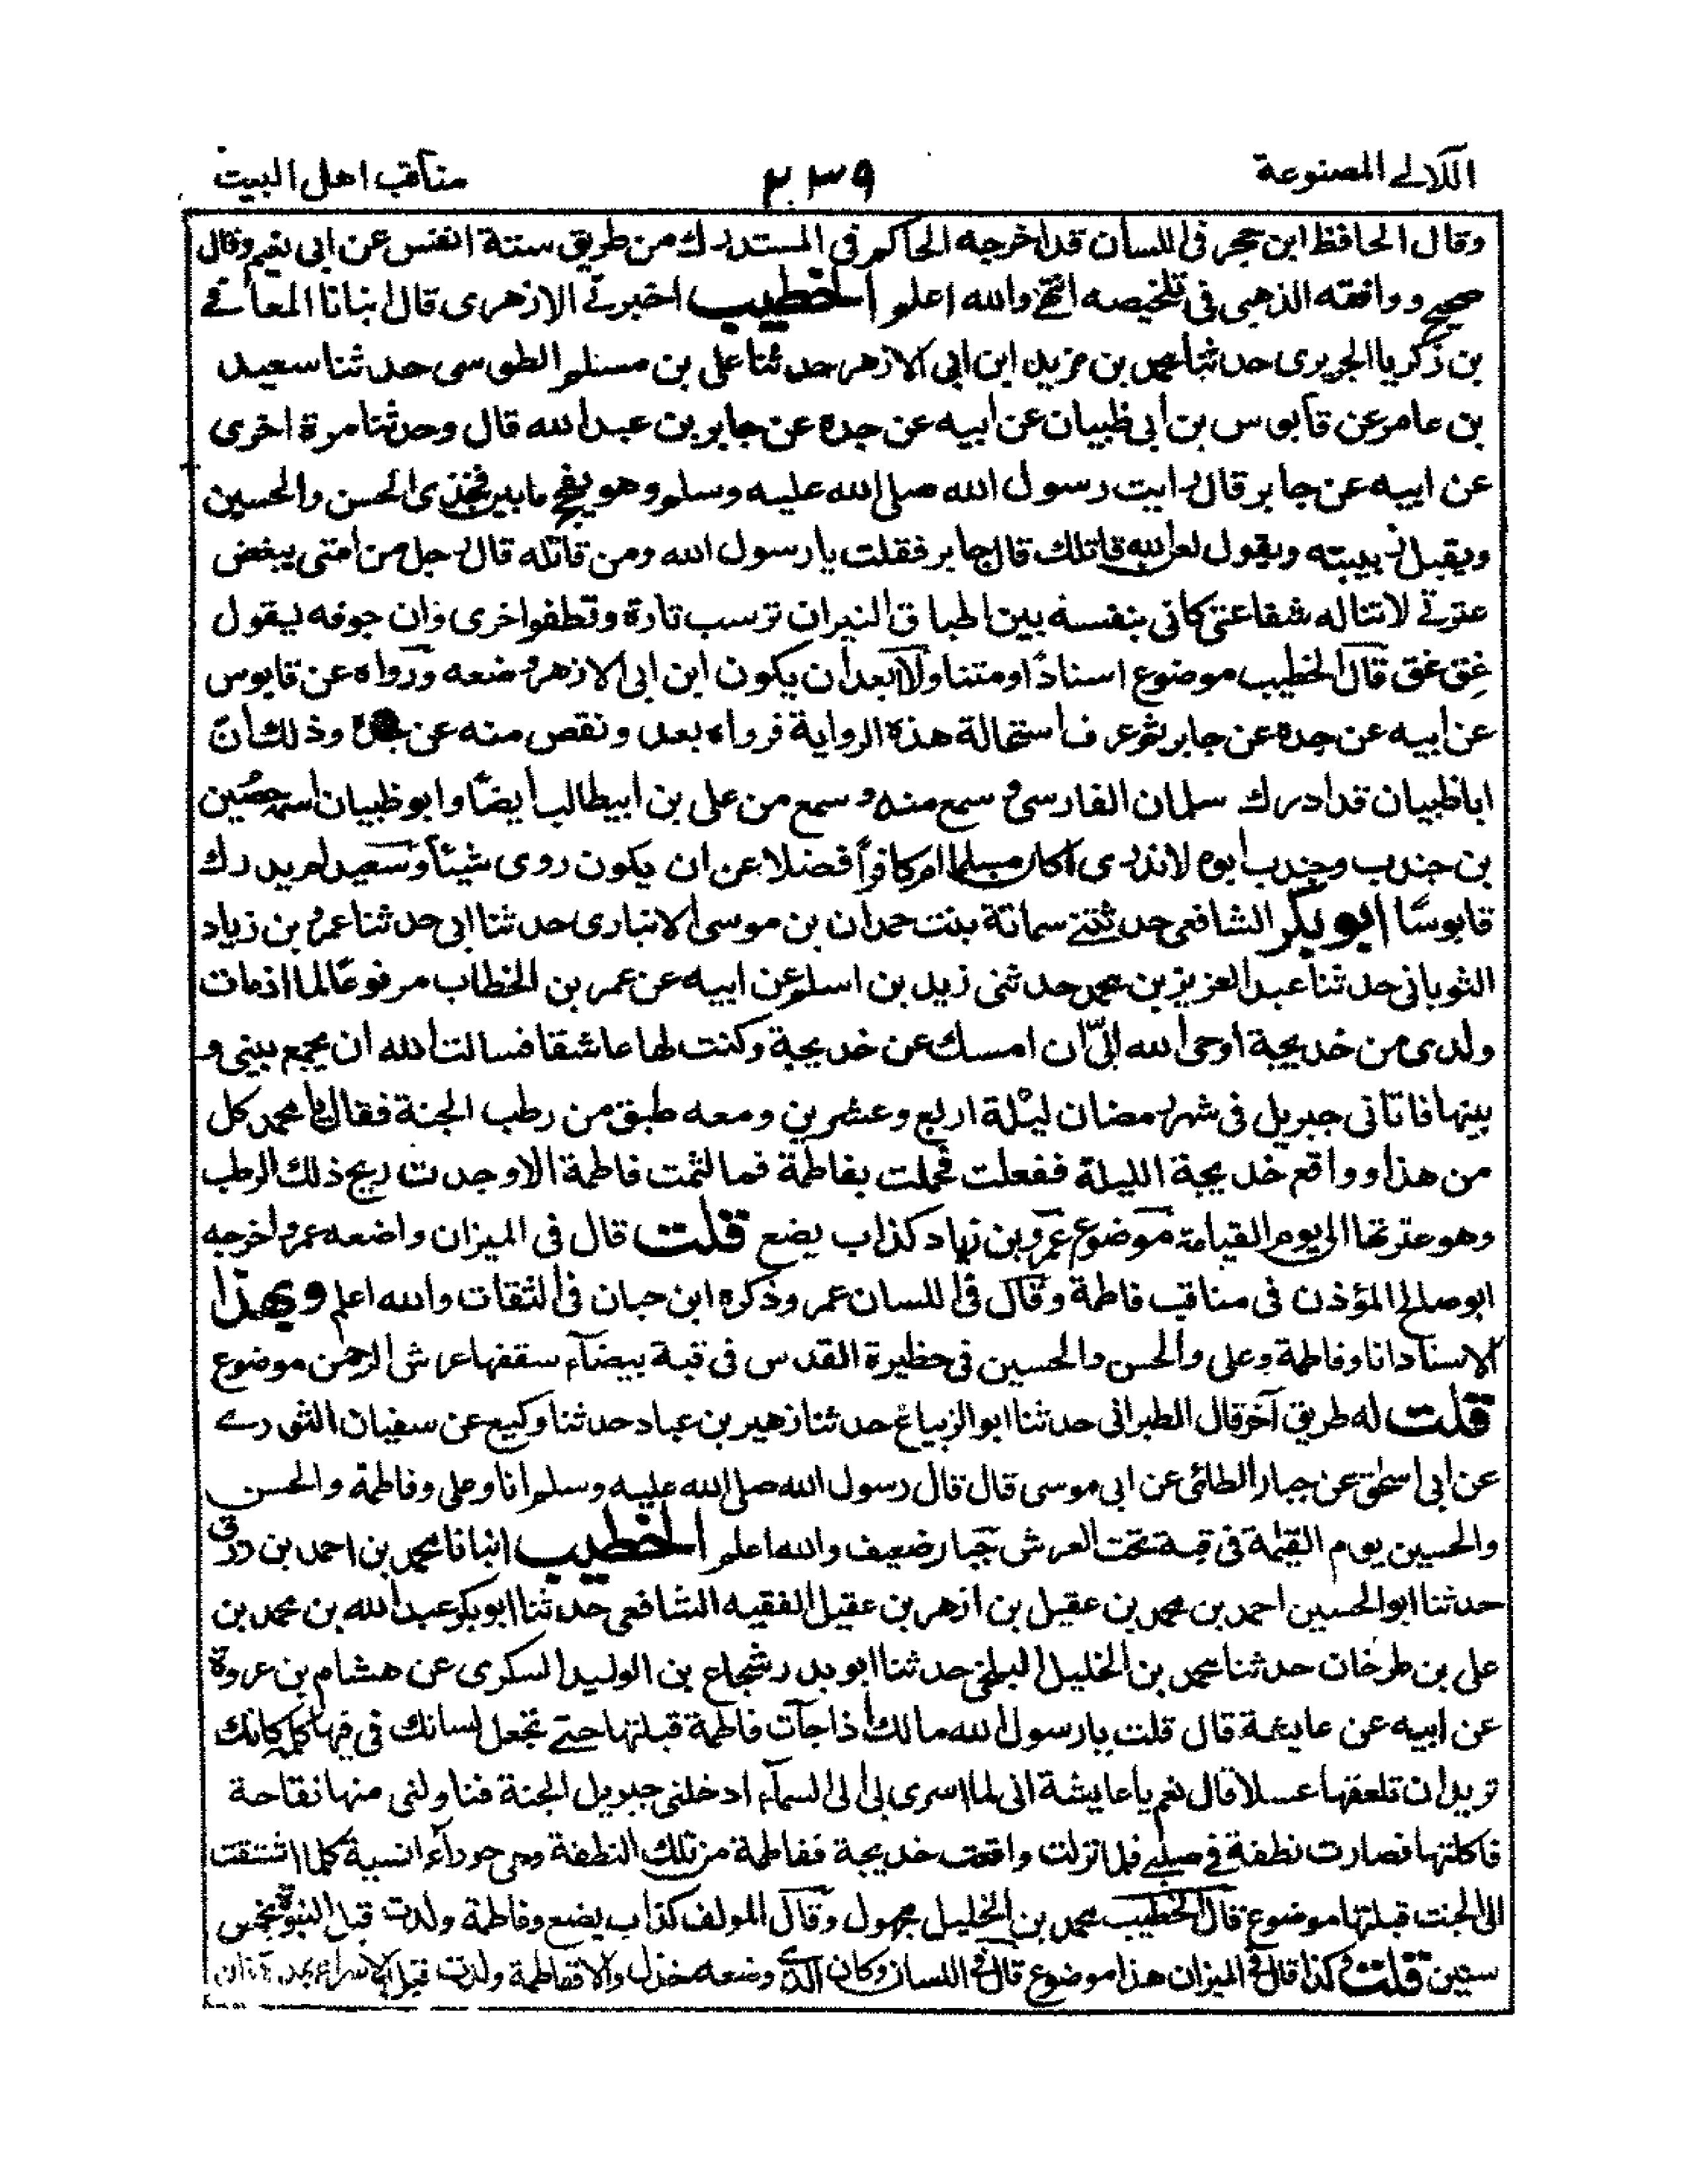 اللآلے المصنوعة
۲۳۹
مناقب اهل البيت
وقال الحافظ ابن حجر فى اللسان قد اخرجه الحاكم فى المستدرك من طريق ستة انفس عن ابى نعيم وقال
صحيح ووافقه الذهبى فى تلخيصه انتهى والله اعلم الخطيب اخبرنے الازهرى قال انبانا المعافے
بن زكريا الجريرى حدثنا محمد بن مزيد ابن ابى الازهر حدثنا على بن مسلم الطوسى حدثنا سعيد
بن عامر عن قابوس بن ابى ظبيان عن ابيه عن جده عن جابر بن عبد الله قال وحدثنا مرة اخرى
عن ابيه عن جابر قال رايت رسول الله صلى الله عليه وسلم وهو يفحج ما بين فخذى الحسن والحسين
ويقبل زبيبته ويقول لعن الله قاتلك قال جابر فقلت يا رسول الله ومن قاتله قال رجل من امتى يبغض
عترتے لا تناله شفاعتى كانى بنفسه بين اطباق النيران ترسب تارة وتطفوا اخرى وان جوفه ليقول
غق غق قال الخطيب موضوع اسنادًا ومتنا ولا ابعد ان يكون ابن ابى الازهر وضعه ورواه عن قابوس
عن ابيه عن جده عن جابر ثم عرف استحالة هذه الرواية فرواه بعد ونقص منه عن جده وذلك ان
ابا ظبيان قد ادرك سلمان الفارسى و سمع منه و سمع من على بن ابيطالب ايضًا وابو ظبيان اسمه حصين
بن جندب وجندب ابوه لا ندرى اكان مسلما ام كافرًا فضلا عن ان يكون روى شيئًا وسعيد لم يدرك
قابوسًا ابو بكر الشافعى حدثتنے سمانة بنت حمدان بن موسى الانبارى حدثنا ابى حدثنا عمرو بن زياد
الثوبانى حدثنا عبد العزيز بن محمد حدثنى زيد بن اسلم عن ابيه عن عمر بن الخطاب مرفوعًا لما اذ مات
ولدى من خديجة اوحى الله الىّ ان امسك عن خديجة وكنت لها عاشقا فسالت الله ان يجمع بينى و
بينها فاتانى جبريل فى شهر رمضان ليلة اربع وعشرين ومعه طبق من رطب الجنة فقال يا محمد كل
من هذا وواقع خديجة الليلة ففعلت فحملت بفاطمة فما لثمت فاطمة الا وجدت ريح ذلك الرطب
وهو عترتها الى يوم القيامة موضوع عمرو بن زياد كذاب يضع قلت قال فى الميزان واضعه عمرو اخرجه
ابو صالح المؤذن فى مناقب فاطمة وقال فى اللسان عمر وذكره ابن حبان فى الثقات والله اعلم وبهذا
الاسناد انا وفاطمة وعلى والحسن والحسين فى حظيرة القدس فى قبة بيضآء سقفها عرش الرحمن موضوع
قلت له طريق آخر قال الطبرانى حدثنا ابو الزنباع حدثنا زهير بن عباد حدثنا وكيع عن سفيان الثورے
عن ابى اسحٰق عن جبار الطائى عن ابى موسى قال قال رسول الله صلى الله عليه وسلم انا وعلى وفاطمة والحسن
والحسين يوم القيٰمة فى قبة تحت العرش جبار ضعيف والله اعلم الخطيب انبانا محمد بن احمد بن رزق
حدثنا ابو الحسين احمد بن محمد بن عقيل بن ازهر بن عقيل الفقيه الشافعى حدثنا ابو بكر عبد الله بن محمد بن
على بن طرخان حدثنا محمد بن الخليل البلخى حدثنا ابو بدر شجاع بن الوليد السكرى عن هشام بن عروة
عن ابيه عن عايشة قال قلت يا رسول الله مالك اذا جآت فاطمة قبلتها حتے تجعل لسانك فى فيها كله كانك
تريد ان تلعقها عسلا قال نعم يا عايشة انى لما اسرى بى الى السمآء ادخلنى جبريل الجنة فناولنى منها تفاحة
فاكلتها فصارت نطفة فے صلبے فلما نزلت واقعت خديجة ففاطمة من تلك النطفة وهى حوراء انسية كلما اشتقت
الى الجنت قبلتها موضوع قال الخطيب محمد بن الخليل مجهول وقال المولف كذاب يضع وفاطمة ولدت قبل النبوة بخمس
سنين قلت وكذا قال فى الميزان هذا موضوع قال فى اللسان وكان الذى وضعه خذل والا ففاطمة ولدت قبل الاسراء بمدة فان